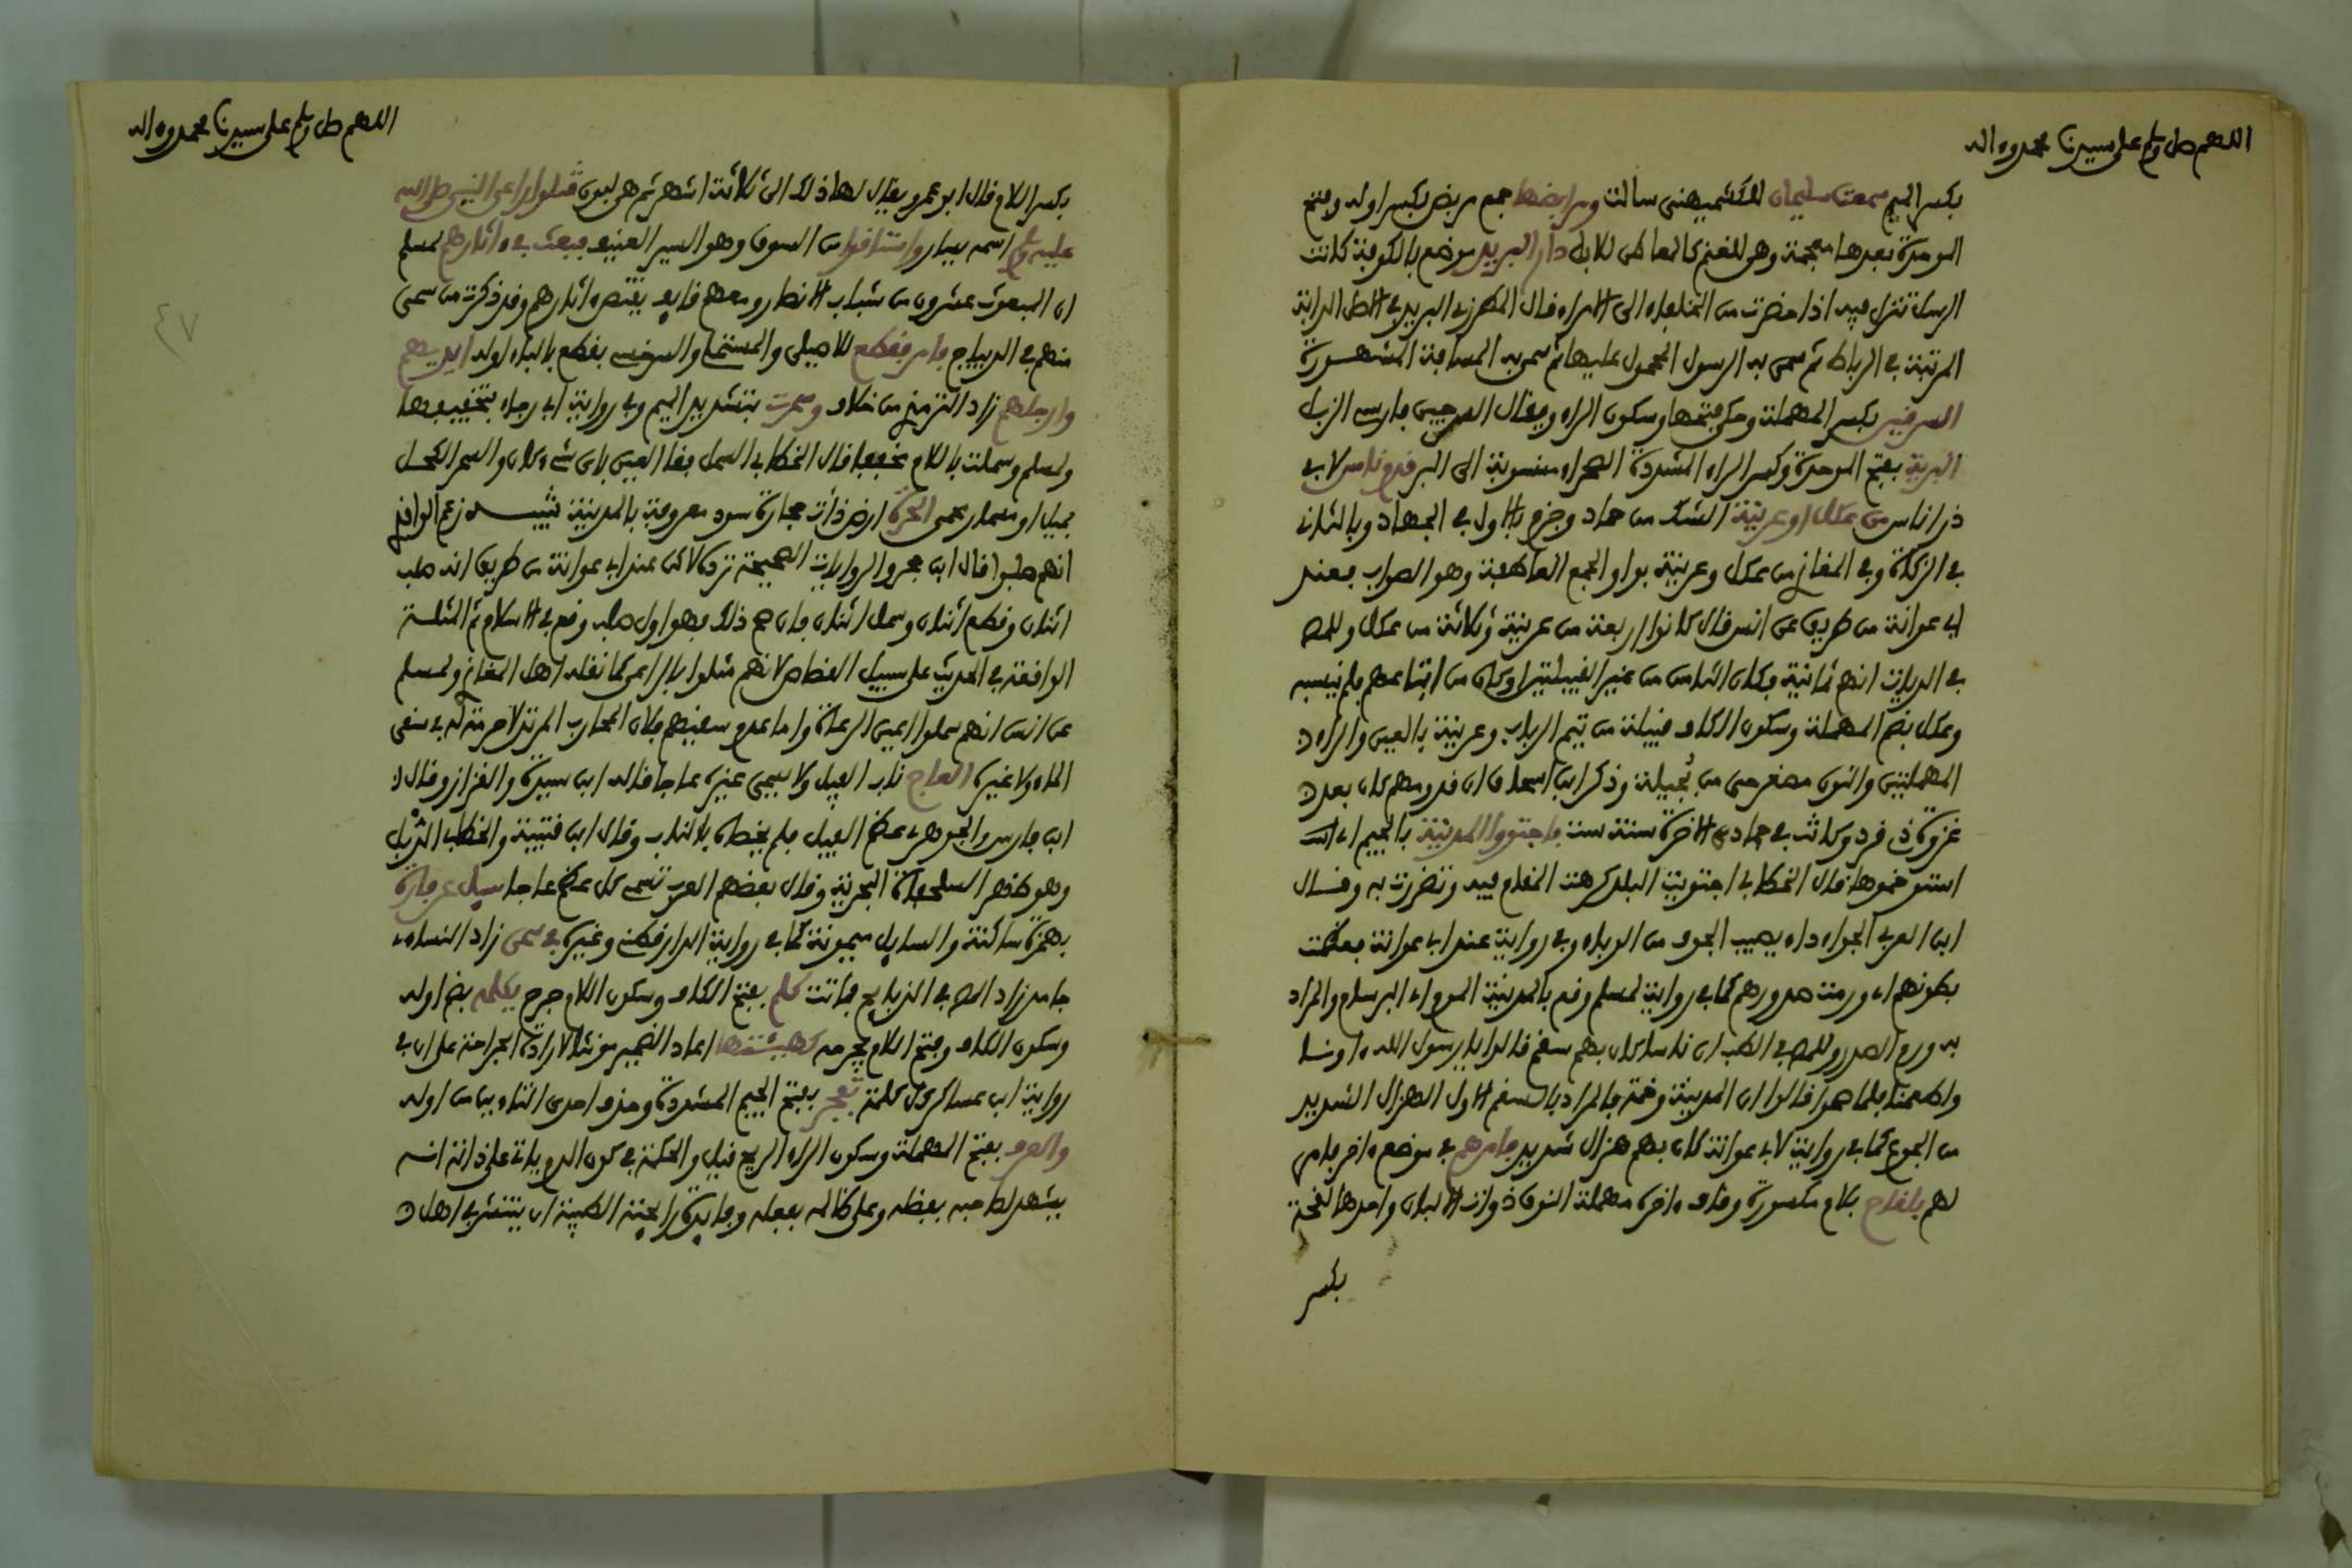 اللهم صل وسلم على سيدنا محمد وءاله
بكسر الميم سمعت سليمان للكشميهني سالت ومرابضها جمع مربض بكسر اوله وفتح
الموحدة بعدها معجمة وهي للغنم كالمعاطن للابل دار البريد موضع بالكوفة كانت
الرسل تنزل فيه اذا حضرت من الخلفاء الى الامراء قال المطرزي البريد في الاصل الدابة
المرتبة في الرباط ثم سمي به الرسول المحمول عليها ثم سميت به المسافة المشهورة
السرقين بكسر المهملة وحكي فتحها وسكون الراء ويقال السرجين فارسي الزبل
البرية بفتح الموحدة وكسر الراء المشددة الصحراء منسوبة الى البر قدم ناس لابي
ذر اناس من عكل او عرينة الشك من حماد وجزم بالاول في الجهاد وبالثاني
في الزكاة وفي المغازي من عكل وعرينة بواو الجمع العاطفة وهو الصواب فعند
ابي عوانة من طريق عن انس قال كانوا اربعة من عرينة وثلاثة من عكل وللمص
في الديات انهم ثمانية فكان الثامن من غير القبيلتين او كان من اتباعهم فلم ينسبه
وعكل بضم المهملة وسكون الكاف قبيلة من تيم الرباب وعرينة بالعين والراء
المهملتين والنون مصغر حي من بجيلة وذكر ابن اسحاق ان قدومهم كان بعد
غزوة ذي قرد وكانت في جمادى الاخرة سنة ست فاجتووا المدينة بالجيم اي
استوخموها قال الخطابي اجتويت البلد كرهت المقام فيه وتضررت به وقال
ابن العربي الجواء داء يصيب الجوف من الوباء وفي رواية عند ابي عوانة فعظمت
بطونهم اي ورمت صدورهم كما في رواية لمسلم وقع بالمدينة الموم اي البرسام والمراد
به ورم الصدر وللمص في الطب ان ناسا كان بهم سقم قالوا يا رسول الله ءاونا
واطعمنا فلما صحوا قالوا ان المدينة وخمة فالمراد بالسقم الاول الهزال الشديد
من الجوع كما في رواية لابي عوانة كان بهم هزال شديد فامرهم في موضع ءاخر فامر
لهم بلقاح بلام مكسورة وقاف وءاخره مهملة النوق ذوات الالبان واحدها لقحة
بكسر
اللهم صل وسلم على سيدنا محمد وءاله
بكسر اللام وقال ابو عمرو يقال لها ذلك الى ثلاثة اشهر ثم هي لبون قتلوا راعي النبي صلى الله
عليه وسلم اسمه يسار واستاقوا من السوق وهو السير العنيف فبعث في ءاثارهم لمسلم
ان المبعوث عشرون من شباب الانصار ومعهم قايف يقتص ءاثارهم وقد ذكرت من سمي
منهم في الديباج فامر فقطع للاصيلي والمستملي والسرخسي بقطع بالباء اوله ايديهم
وارجلهم زاد الترمذي من خلاف وسمرت بتشديد الميم وفي رواية ابي رجاء بتخفيفها
ولمسلم وسملت باللام مخففا قال الخطابي السمل فقا العين باي شيء كان والسمر الكحل
بميل او مسمار محمى الحرة ارض ذات حجارة سود معروفة بالمدينة تنبيه زعم الواقدي
انهم صلبوا قال ابن حجر والروايات الصحيحة ترده لاكن عند ابي عوانة من طريق انه صلب
اثنان وقطع اثنان وسمل اثنان فان صح ذلك فهو اول صلب وقع في الاسلام ثم المثلة
الواقعة في الحديث على سبيل القصاص لانهم مثلوا بالراعي كما نقله اهل المغازي ولمسلم
عن انس انهم سملوا اعين الرعاة واما عدم سقيهم فلان المحارب المرتد لا حرمة له في سقي
الماء ولا غيره العاج ناب الفيل ولا يسمى غيره عاجا قاله ابن سيده والقزاز وقال
ابن فارس والجوهري عظم الفيل فلم يخصاه بالناب وقال ابن قتيبة والخطابي الذبل
وهو ظهر السلحفاة البحرية وقال بعضهم العرب تسمي كل عظم عاجا سيل عن فارة
بهمزة ساكنة والسايل ميمونة كما في رواية الدارقطني وغيره في سمن زاد النساءي
جامد زاد المص في الذبايح فماتت كلم بفتح الكاف وسكون اللام جرح يكلمه بضم اوله
وسكون الكاف وفتح اللام يجرحه كهيئتها اعاد الضمير مؤنثا لارادة الجراحة على ان في
رواية ابن عساكر كل كلمة تفجر بفتح الجيم المشددة وحذف احدى التاءين من اوله
والعرف بفتح المهملة وسكون الراء الريح قيل والحكمة في كون الدم ياتي على ذاته انه
يشهد لصاحبه بفضله وعلى ظالمه بفعله وفايدة رايحته الطيبة ان ينتشر في اهل